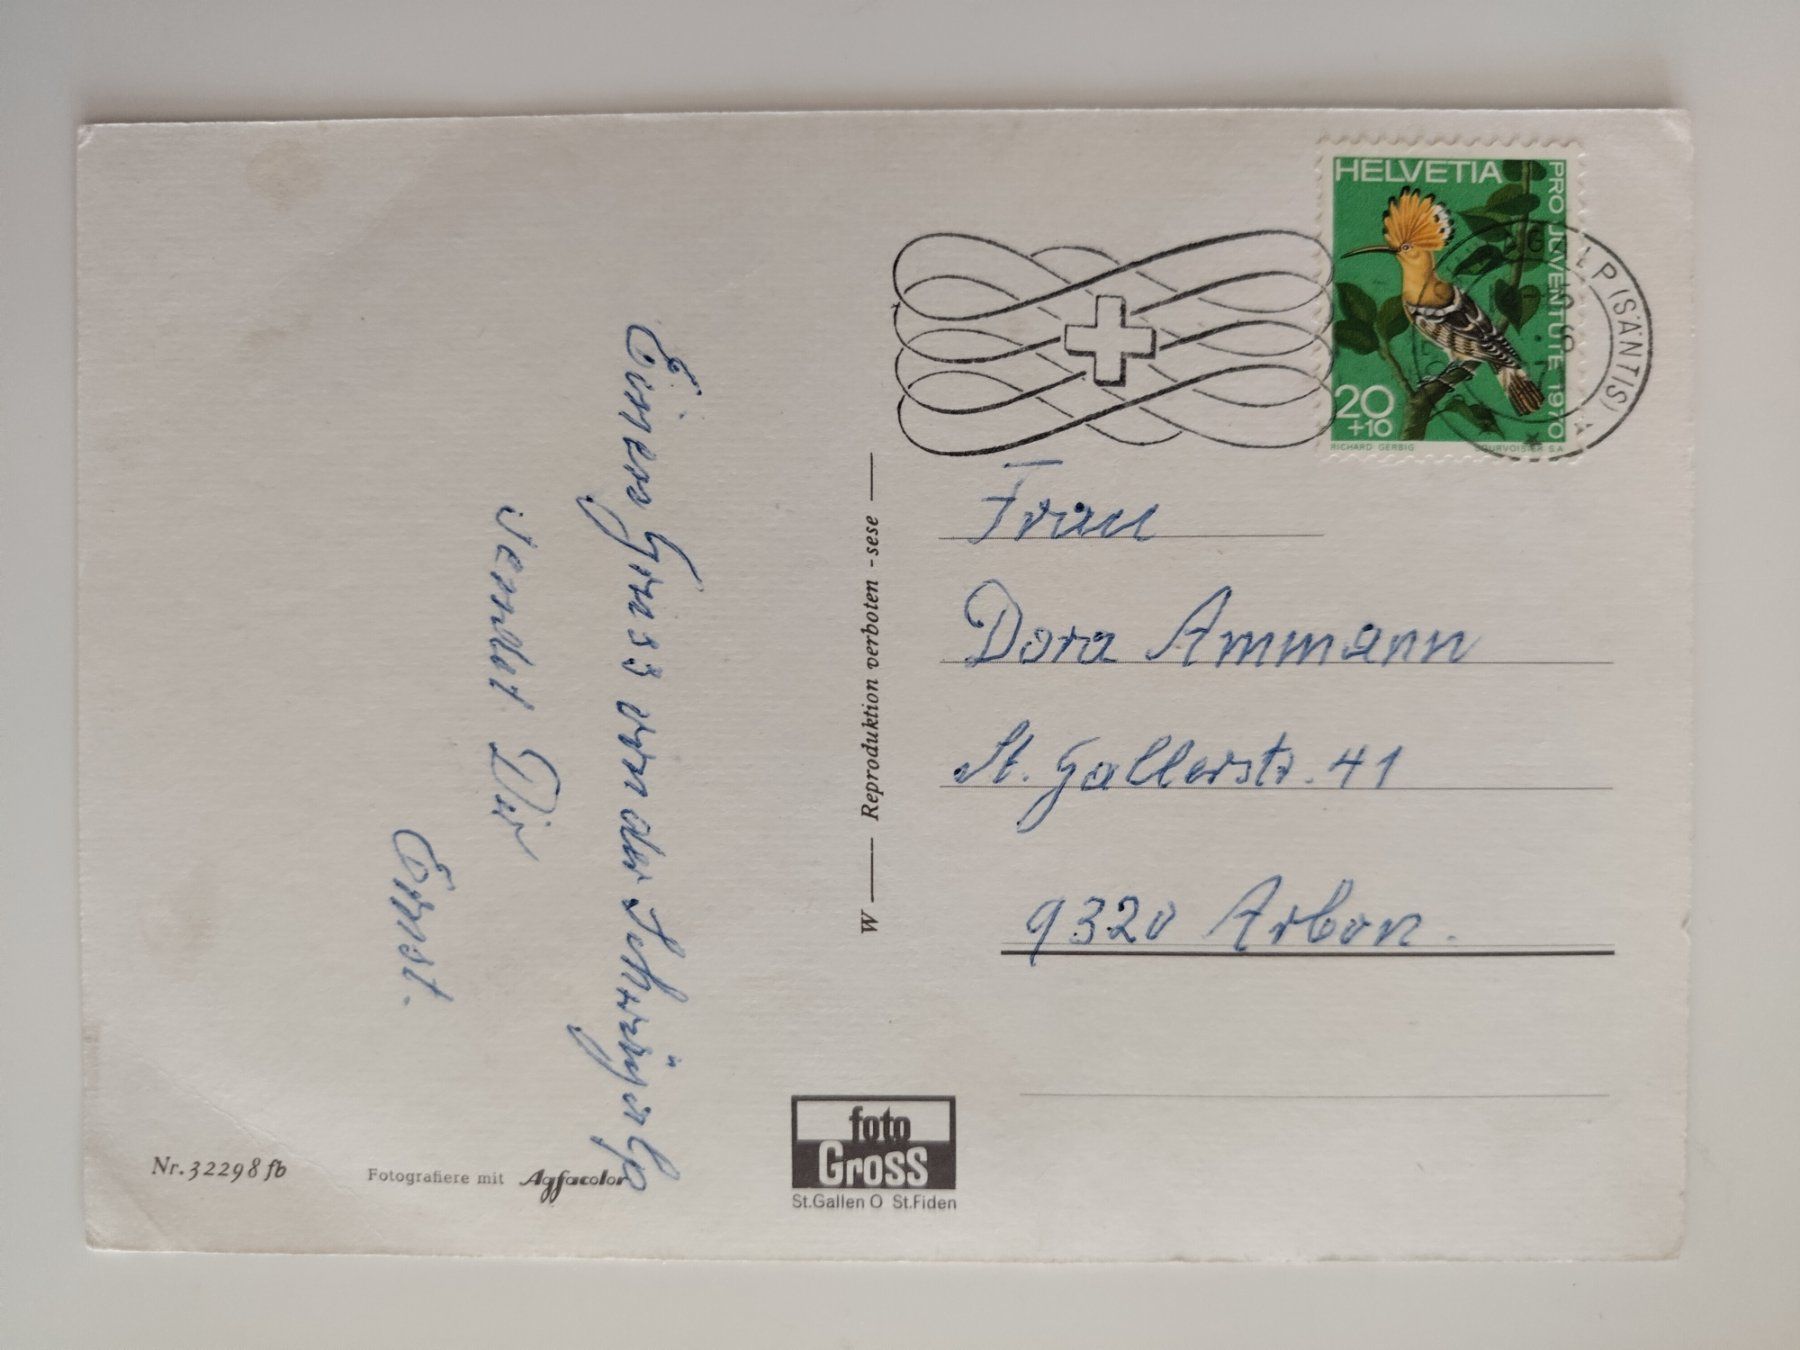 Einen Gruss von der Schwägalp
sendet Dir
Ernst.
Nr. 32298 fb
Fotografiere mit Agfacolor
W — Reproduktion verboten - sese —
foto
Gross
St.Gallen O St.Fiden
HELVETIA
PRO JUVENTUTE 1970
20
+10
RICHARD GERBIG COURVOISIER S A
(SÄNTIS)
Frau
Dora Ammann
St. Gallerstr. 41
9320 Arbon.